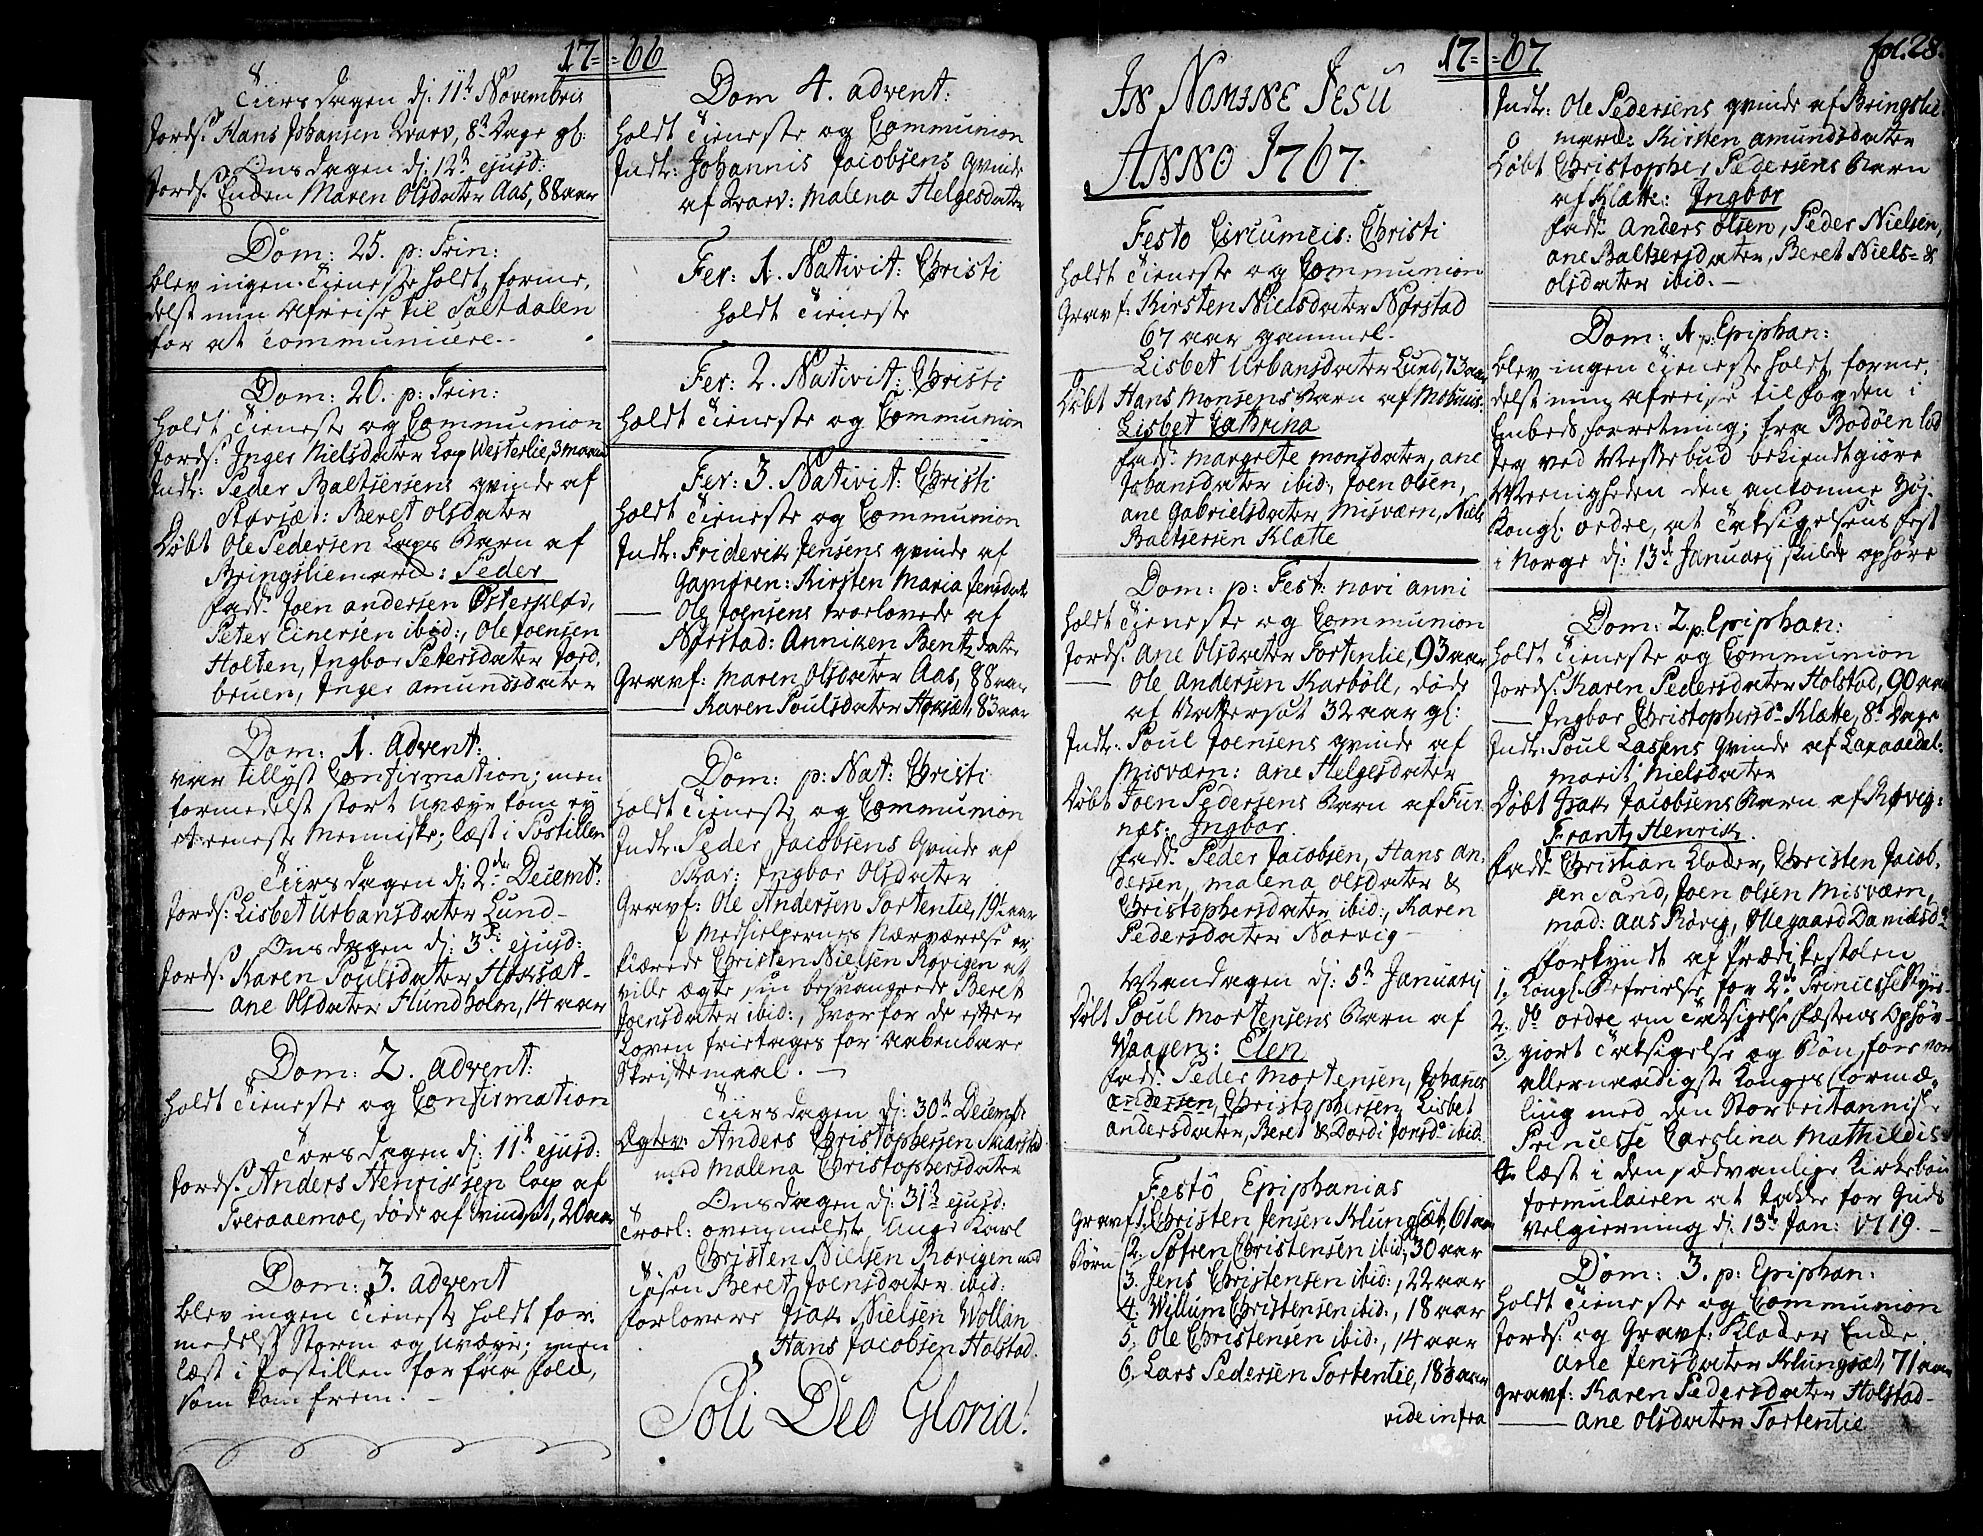 17=
=66
Tiirsdagen d: 11te Novembris
Jords: Hans Johansen Kvarv, 8te Dage gl:
Onsdagen d: 12te ejusd:
Jords: Enken Maren Olsdater Aas, 88 aar
Dom: 25. p: Trin:
blev ingen Tieneste holdt, forme,
delst min Afreise til Saltdalen
for at communicere.
Dom: 26. p: Trin:
holdt Tieneste og Communion
Jords: Inger Nielsdater Lap Westerlie, 3 maan
Indl: Peder Baltzersens qvinde af
Storsæt: Beret Olsdater
Döbt Ole Pedersen Laps Barn af
Bringsliemark: Peder
fadd: Joen Andersen Österkløv,
Peter Einersen ibid:, Ole Joensen
Holten, Ingbor Petersdater Jord,
bruen, Inger Amundsdater
Dom: 1. Advent:
var tillyst Confirmation; men
formedelst stort uveyr kom ey
et eeneste Menniske; læst i Postillen
Tiirsdagen d: 2den Decembr:
Jords: Lisbet Urbansdater Lund
Onsdagen d: 3die ejusd:
Jords: Karen Poulsdater Høksæt
Ane Olsdater Flundholm, 14 aar
Dom: 2. Advent:
holdt Tieneste og Confirmation
Torsdagen d: 11te ejusd:
Jords: Anders Henriksen Lap af
Tveraaemoe, döde af Svindsot, 20 aar
Dom: 3. Advent
blev ingen Tieneste holdt for,
medelst Storm og uvæir; men
læst i Postillen for faa folk,
som kom frem.
Dom 4. Advent:
holdt Tieneste og Communion
Indl: Johannis Jacobsens qvinde
af Kvarv: Malena Helgesdater
Fer: 1. Nativit: Christi
holdt Tieneste
Fer: 2. Nativit: Christi
holdt Tieneste og Communion
Fer: 3. Nativit: Christi
holdt Tieneste og Communion
Indl: Friderik Jensens qvinde af
Gamfren: Kirsten Maria Jensdater
Ole Joensens trorlovede af
Nørstad: Anniken Bentzdater
Gravf: Maren Olsdater Aas, 88 aar
Karen Poulsdater Høksæt, 83 aar
Dom: p: Nat: Christi
holdt Tieneste og Communion
Indl: Peder Jacobsens qvinde af
Skar: Ingbor Olsdater
Gravf: Ole Andersen Tortenlie, 19½ aar
I Medhielpernes Nærværelse er
klærede Christen Nielsen Røvigen at
ville ægte sin besvangrede Beret
Joensdater ibid:, hvorfor de efter
Loven frietages for aabenbare
Skriftemaal.
Tiirsdagen d: 30te Decembr
Ægtev: Anders Christophersen Skarstad
med Malena Christophersdater
Onsdagen d: 31te ejusd:
Trorl: ovenmeldte unge Karl
Christen Nielsen Røvigen med
Tösen Beret Joensdater ibid:
forlovere Isak Nielsen Wollan
Hans Jacobsen Holstad.
Soli Deo Gloria!
17=
=67
fol. 28.
IN NOMINE JESU
ANNO 1767.
Festo Circumcis: Christi
holdt Tieneste og Communion
Gravf: Kirsten Nielsdater Nørstad
67 aar gammel.
Lisbet Urbansdater Lund, 73 aar
Döbt Hans Monsens Barn af Mohuus:
Lisbet Catrina
fadd: Margrete Monsdater, Ane
Johansdater ibid:, Joen Olsen,
Ane Gabrielsdater Misværn, Niels
Baltzersen Klætte
Dom: p: Fest: novi anni
holdt Tieneste og Communion
Jords: Ane Olsdater Tortenlie, 93 aar
Ole Andersen Karböll, döde
af Nattersot 32 aar gl:
Indl: Poul Joensens qvinde af
Misværn: Ane Helgesdater
Döbt Joen Pedersens Barn af Fur,
næs: Ingbor.
fadd: Peder Jacobsen, Hans An,
dersen, Malena Olsdater &
Christophersdater ibid:, Karen
Pedersdater Norvig
Mandagen d: 5te Januarij
Döbt Poul Mortensens Barn af
Waagen: Elen
fadd: Peder Mortensen, Johanes
Andersen, Christophersen, Lisbet
Andersdater, Beret & Dordi Jonsdr ibid.
Festo Epiphanias
Gravf: 1. Christen Jensen Klungsæt, 61 aar
Börn 2. Søfren Christensen ibid:, 30 aar
3. Jens Christensen ibid:, 22 aar
4. Willum Christensen ibid:, 18 aar
5. Ole Christensen ibid:, 14 aar
6. Lars Pedersen Tortenlie, 18½ aar
vide infra
Indl: Ole Pedersens qvinde af Bringslie
mark: Kirsten Amundsdater
Döbt Christopher Pedersens Barn
af Klætte: Ingbor
fadd: Anders Olsen, Peder Nielsen,
Ane Baltzersdater, Beret Niels= &
Olsdater ibid.
Dom: 1. p: Epiphan:
blev ingen Tieneste holdt, forme,
delst min Afreise til fogden i
Embeds forretning; fra Bodöen lod
jeg ved Messebud bekiendtgiöre
Meenigheden den ankomne Höj,
Kongl: ordre, at Taksigelsens fest
i Norge d: 13de Januarij skulde ophöre
Dom: 2. p. Epiphan:
holdt Tieneste og Communion
Jords: Karen Pedersdater Holstad, 90 aar
Ingbor Christophersdr Klætte, 8te Dage
Indl: Poul Lassens qvinde af Laxaaedal:
Marit Nielsdater
Döbt Isak Jacobsens Barn af Røvig:
Frantz Henrik.
fadd: Christian Klader, Christen Jacob,
sen Sand, Joen Olsen Misværn,
Mad: Aas Rövig, Ollegaard Danielsdr
forkyndt af Prædikestolen
1. Kongl: Befrielse for 2de Princesse Styr
2. do ordre om Taksigelse festens Ophör
3. giort Taksigelse og Bön for vor
allernaadigste Konges formæ,
ling med den Storbritanniske
Princesse Carolina Mathildis
4. læst i den sædvanlige Kirkebön
formulairen at takke for Guds
velgierning d: 13de Jan: 1719.
Dom: 3. p: Epiphan:
holdt Tieneste og Communion
Jords: og Gravf: Klader Enke
Ane Jensdater Klungsæt, 71 aar
Gravf: Karen Pedersdater Holstad
Ane Olsdater Tortenlie